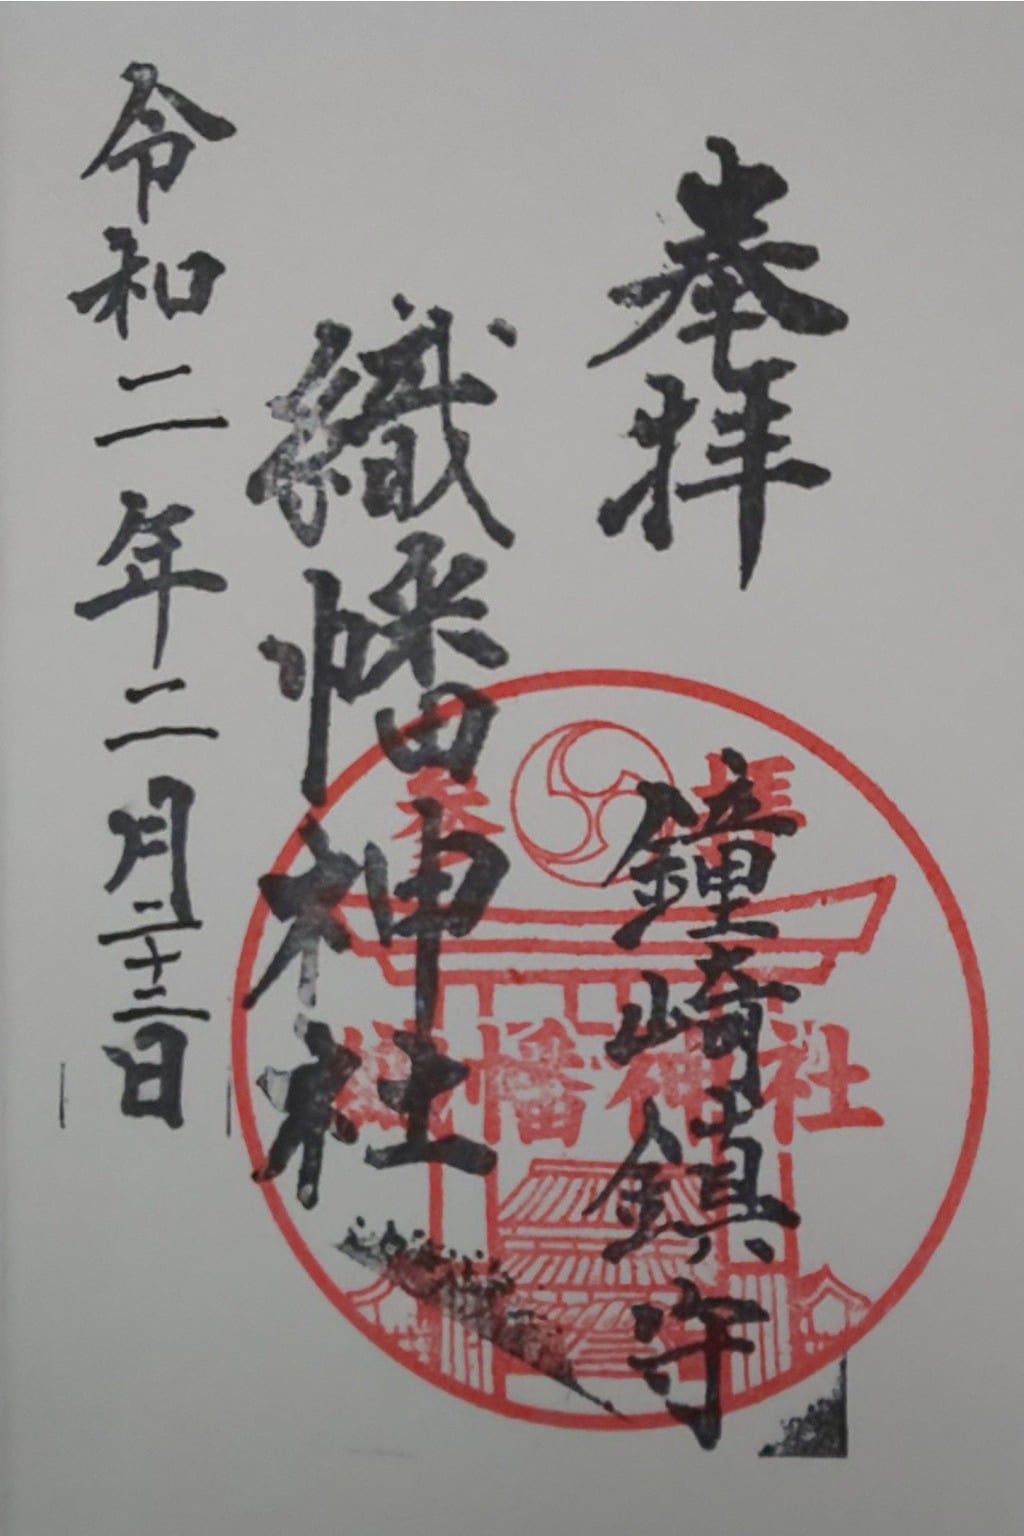 奉拝
鐘崎鎮守
織幡神社
令和二年二月二十二日
参拝
織幡神社